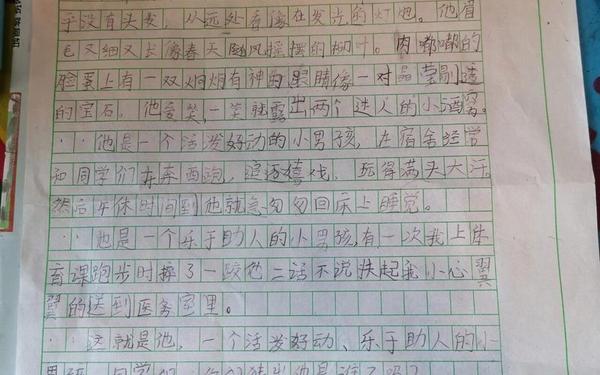 乎没有头发，从远处看像在发光的灯炮。他眉
毛又细又长像春天随风摇摆的柳叶。肉嘟嘟的
脸蛋上有一双炯炯有神的眼睛像一对晶莹剔透
的宝石，他爱笑，一笑就露出两个迷人的小酒窝。
他是一个活发好动的小男孩，在宿舍经常
和同学们东奔西跑，追逐嬉戏，玩得满头大汗，
然后午休时间到他就急匆匆回床上睡觉。
他是一个乐于助人的小男孩，有一次我上体
育课跑步时摔了一跤他二话不说扶起我小心翼
翼的送到医务室里。
这就是他，一个活发好动、乐于助人的小
男孩，同学们，你们猜出他是谁了吗？